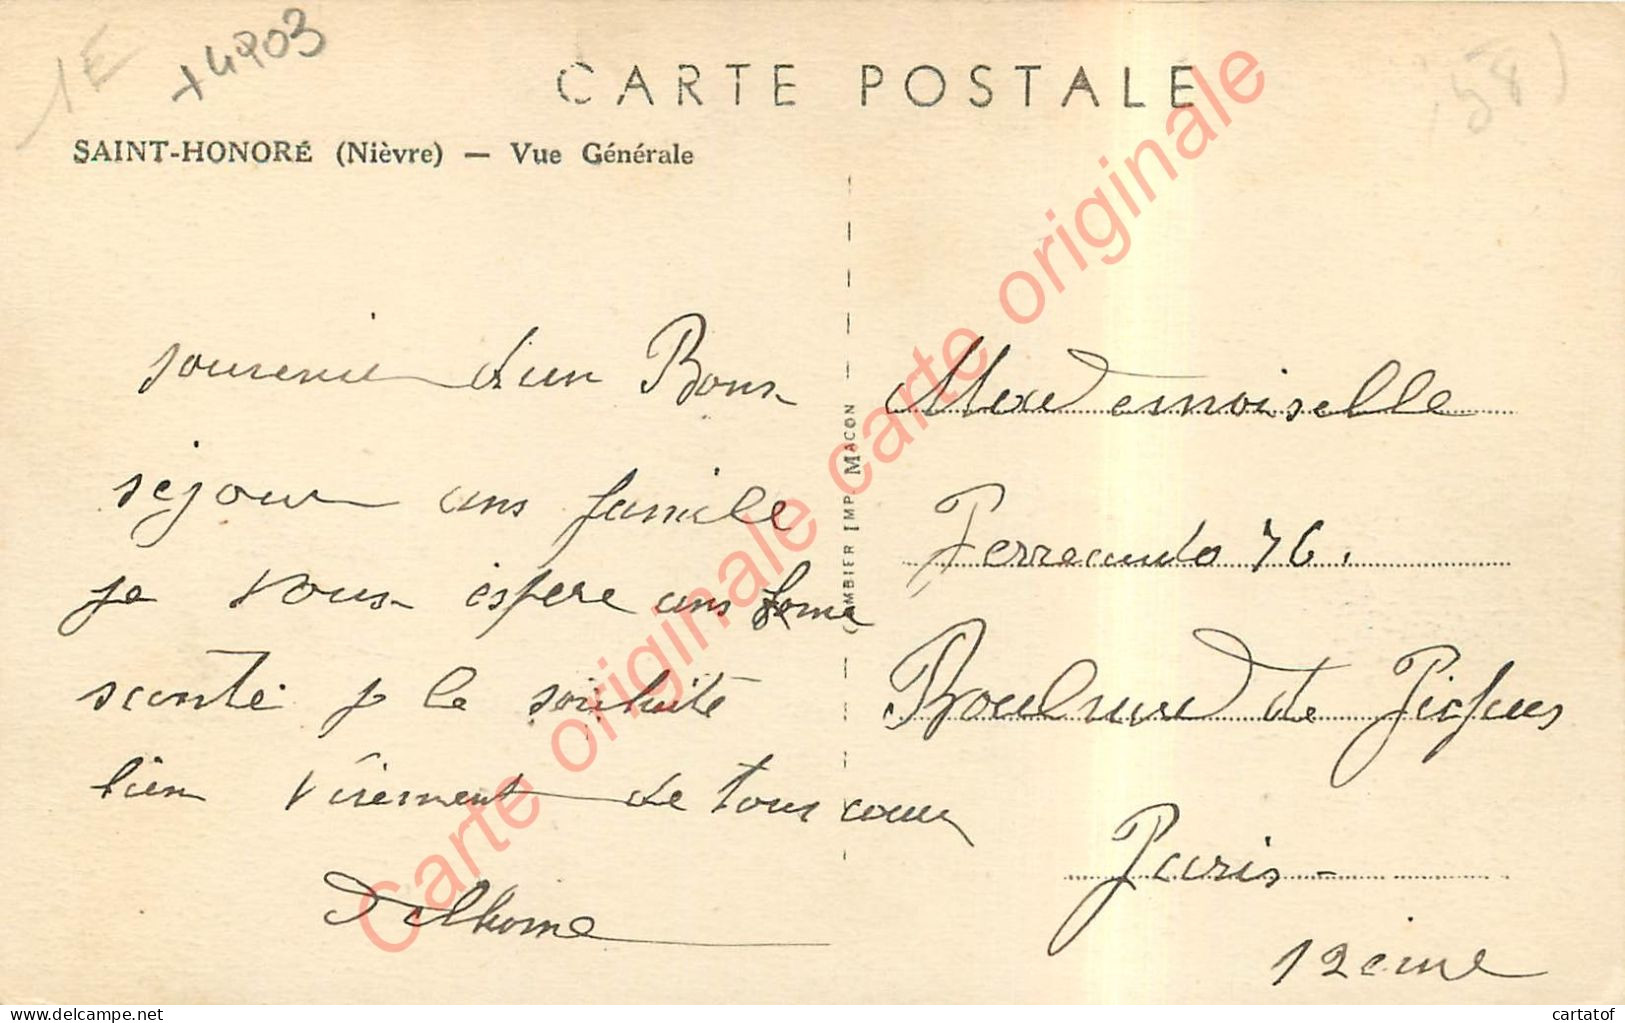 1E
+4903
58)
CARTE POSTALE
SAINT-HONORÉ (Nièvre) — Vue Générale
souvenir d'un Bons
séjour ans famille
je vous espère ans bonne
santé je le souhaite
bien virement de tous coeur
Delhome
COMBIER IMP. MACON
Mademoiselle
Ferrando 76.
Boulevard de Picpus
Paris -
12ème
Carte originale carte originale carte originale
delcampe.net
cartatof